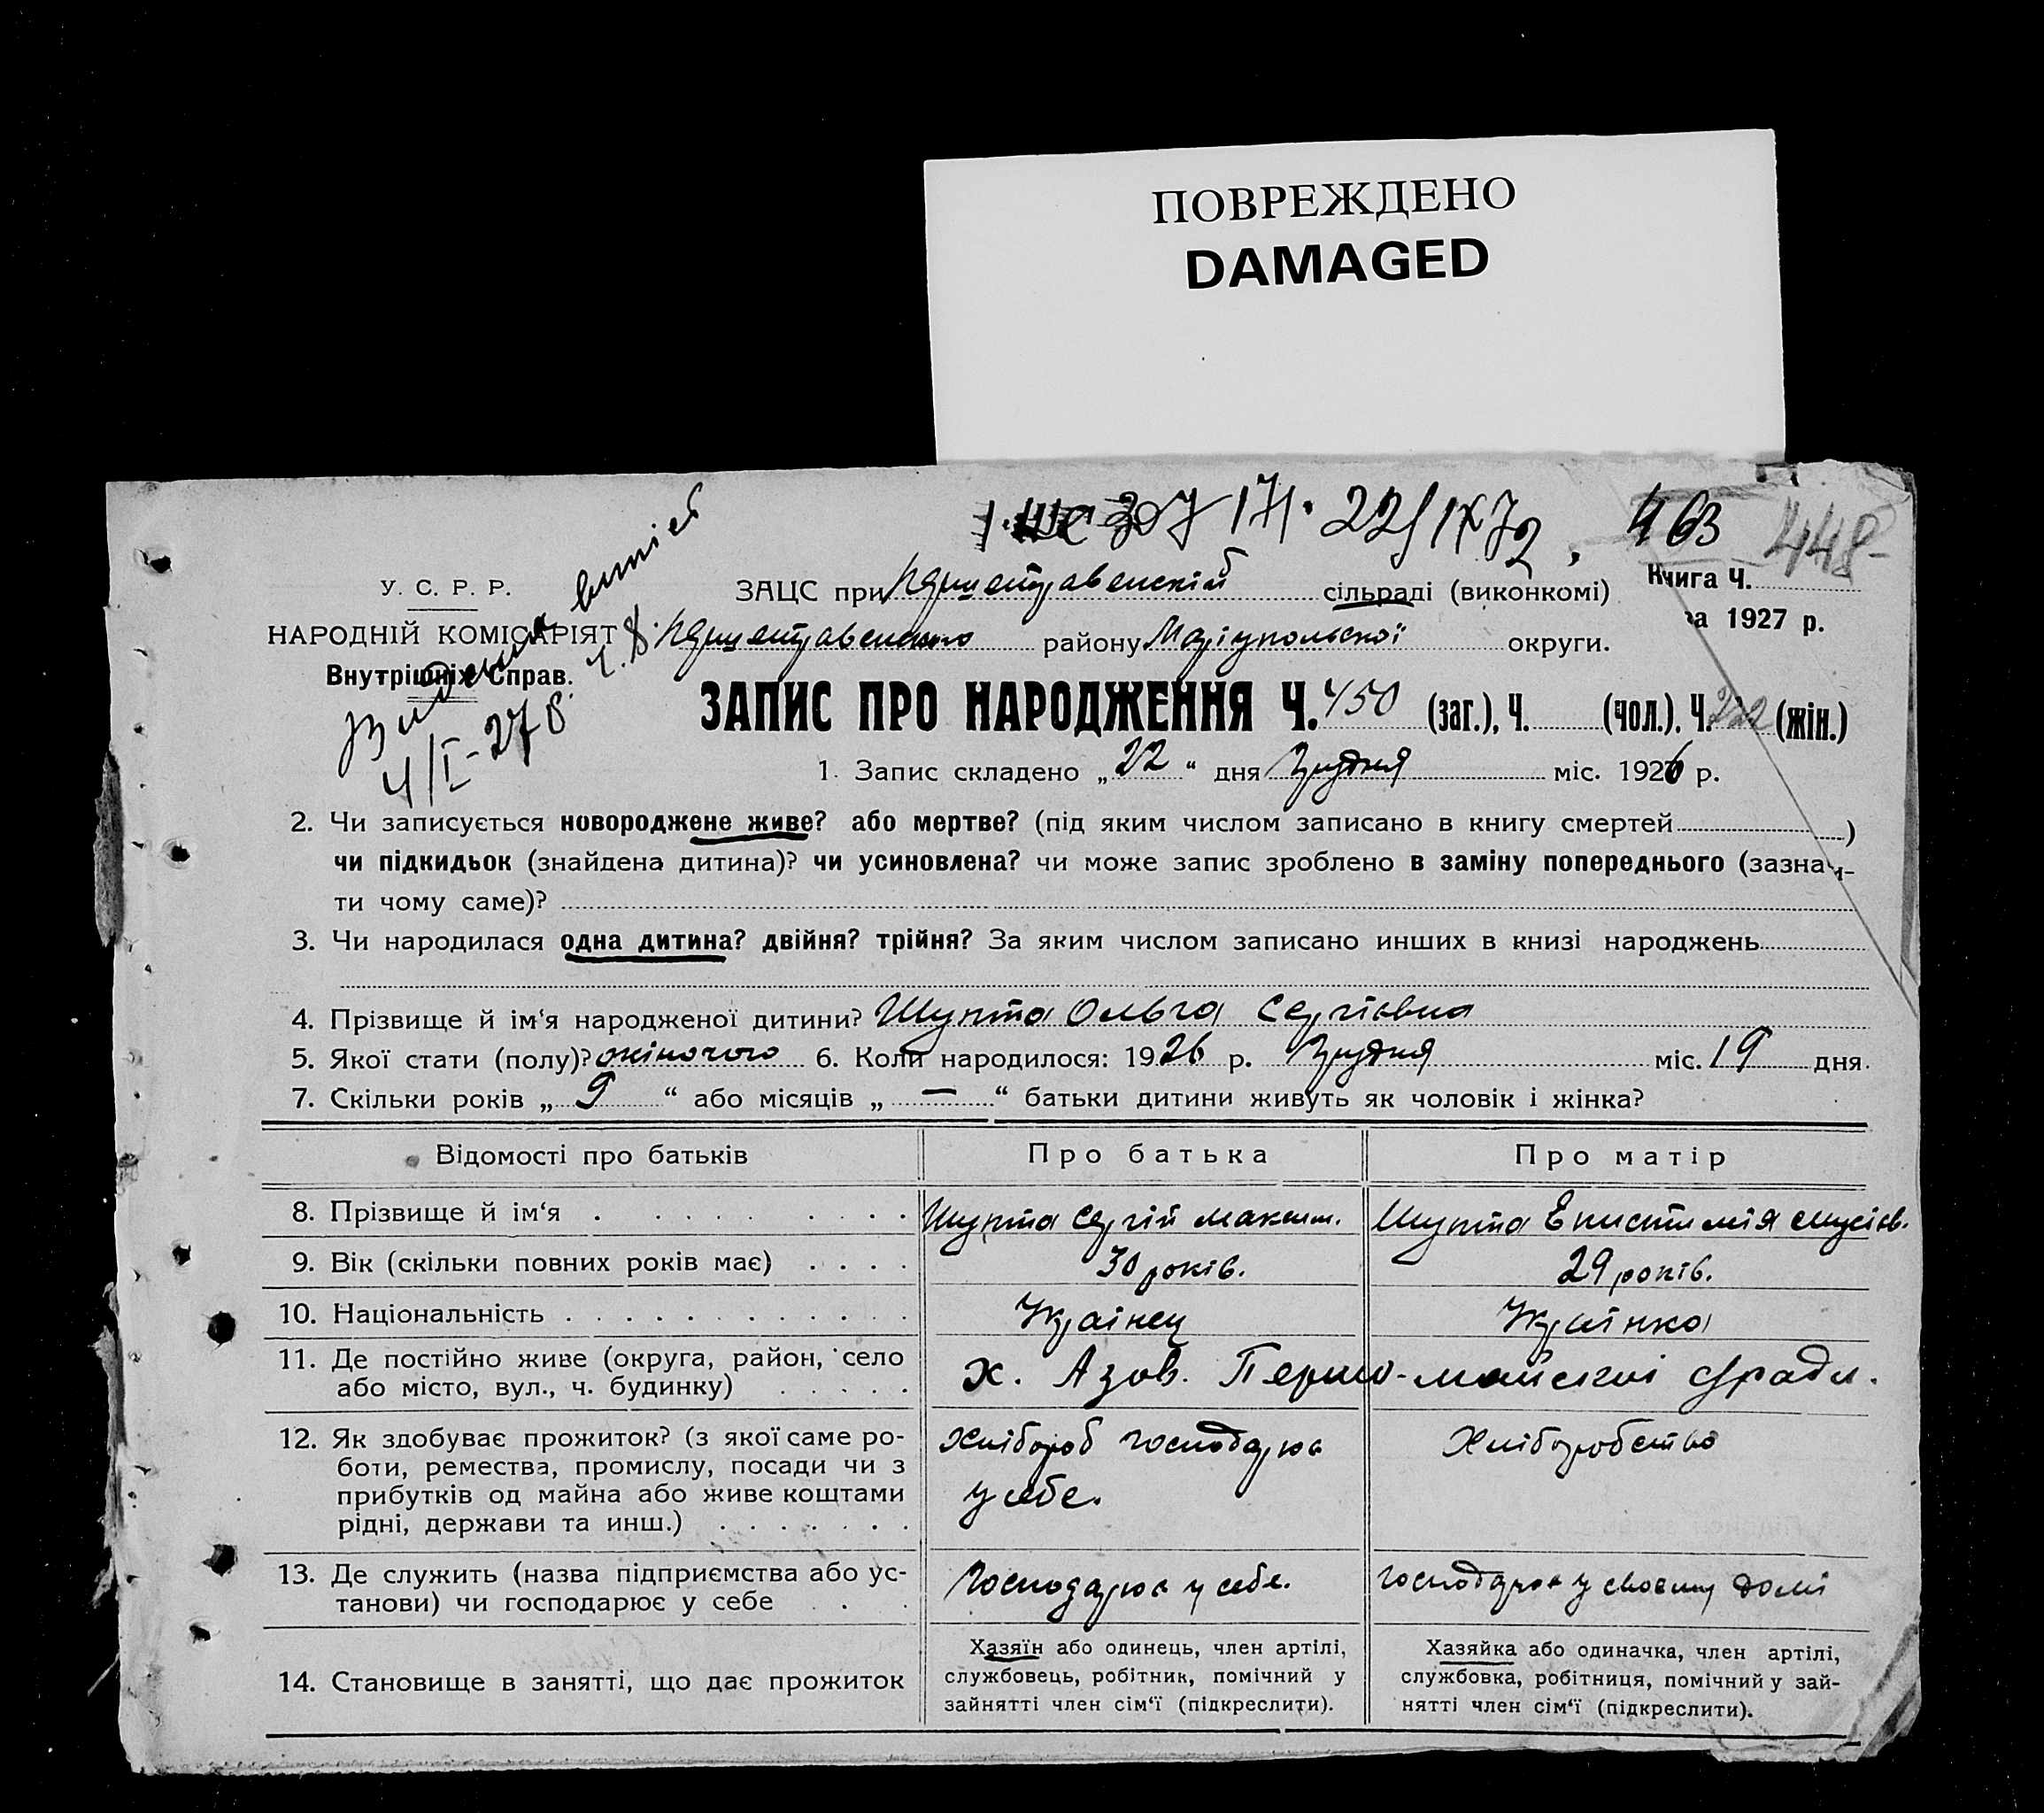 ПОВРЕЖДЕНО
DAMAGED
307 171. 22/IX 72, 463 448
Книга Ч.
за 1927 р.
У. С. Р. Р.
НАРОДНІЙ КОМІСАРІЯТ
Внутрішніх Справ.
Видана витіс
4/I-27 р. Ч. 8.
ЗАЦС при Першетравенській сільраді (виконкомі)
Першетравенського району Маріупольської округи.
ЗАПИС ПРО НАРОДЖЕННЯ Ч. 450 (заг.), Ч. (чол.). Ч. 222 (жін.)
1. Запис складено „22“ дня Грудня міс. 1926 р.
2. Чи записується новороджене живе? або мертве? (під яким числом записано в книгу смертей )
чи підкидьок (знайдена дитина)? чи усиновлена? чи може запис зроблено в заміну попереднього (зазначи-
ти чому саме)?
3. Чи народилася одна дитина? двійня? трійня? За яким числом записано инших в книзі народжень
4. Прізвище й ім‘я народженої дитини? Шупта Ольга Сергієвна
5. Якої стати (полу)? жіночого 6. Коли народилося: 1926 р. Грудня міс. 19 дня.
7. Скільки років „ 9 “ або місяців „ — “ батьки дитини живуть як чоловік і жінка?
Відомості про батьків Про батька Про матір
8. Прізвище й ім‘я Шупта Сергій Максим. Шупта Епистимія Мусієв.
9. Вік (скільки повних років має) 30 років. 29 років.
10. Національність Українец Українка
11. Де постійно живе (округа, район, село
або місто, вул., ч. будинку)
х. Азов. Першо-майської с/ради.
12. Як здобуває прожиток? (з якої саме ро-
боти, ремества, промислу, посади чи з
прибутків од майна або живе коштами
рідні, держави та инш.)
Хлібороб господарює
у себе.
Хліборобство
13. Де служить (назва підприємства або ус-
танови) чи господарює у себе
Господарює у себе.
господарює у своєму домі
14. Становище в занятті, що дає прожиток
Хазяїн або одинець, член артілі,
службовець, робітник, помічний у
зайнятті член сім‘ї (підкреслити).
Хазяйка або одиначка, член артілі,
службовка, робітниця, помічний у зай-
нятті член сім‘ї (підкреслити).